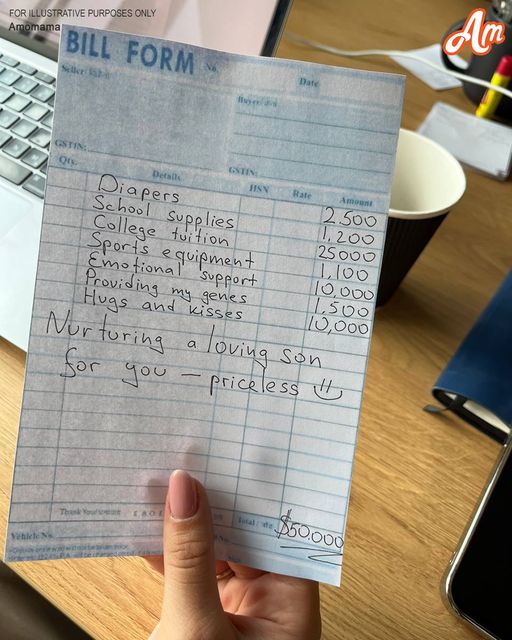 FOR ILLUSTRATIVE PURPOSES ONLY
Amomama
Am
BILL FORM No.
Date
Seller:
Buyer:
GSTIN:
GSTIN:
Qty. Details HSN Rate Amount
Diapers 2,500
School supplies 1,200
College tuition 25000
Sports equipment 1,100
Emotional support 10,000
Providing my genes 1,500
Hugs and kisses 10,000
Nurturing a loving son
for you – priceless
Thank You E.&O.E. Total $50.000
Vehicle No.